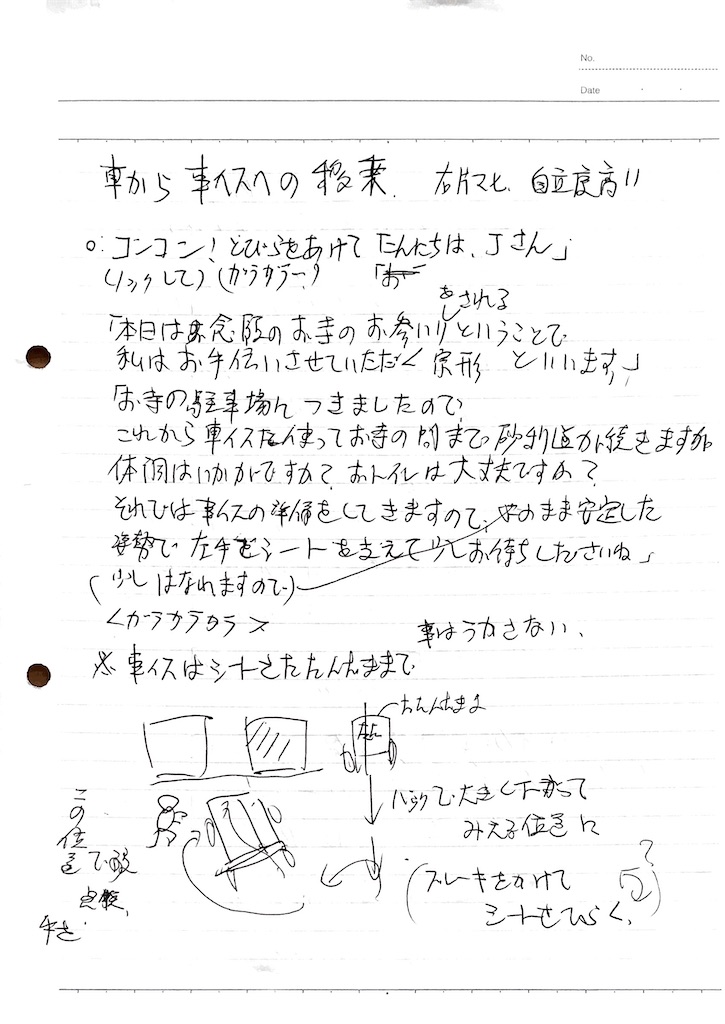 No.
Date
車から車イスへの移乗. 右片マヒ、自立度高い
○:コンコン!とびらをあけて「こんにちは、Jさん」
(ノックして)(ガラガラー!)「お
をされる
「本日はお寺のお参りということで
私はお手伝いさせていただく宗形といいます」
「お寺の駐車場につきましたので、
これから車イスを使ってお寺の門まで砂利道が続きますが
体調はいかがですか?おトイレは大丈夫ですか?
それでは車イスの準備をしてきますので、そのまま安定した
姿勢で左手でシートを支えて少しお待ちくださいね」
(少しはなれますので)
<ガラガラガラ>
車はうかさない、
※車イスはシートをたたんだままで
たたんだまま
バックで大きく下がって
みえる位置に
この位置で
点検、
(ブレーキをかけて
シートをひらく、)
?